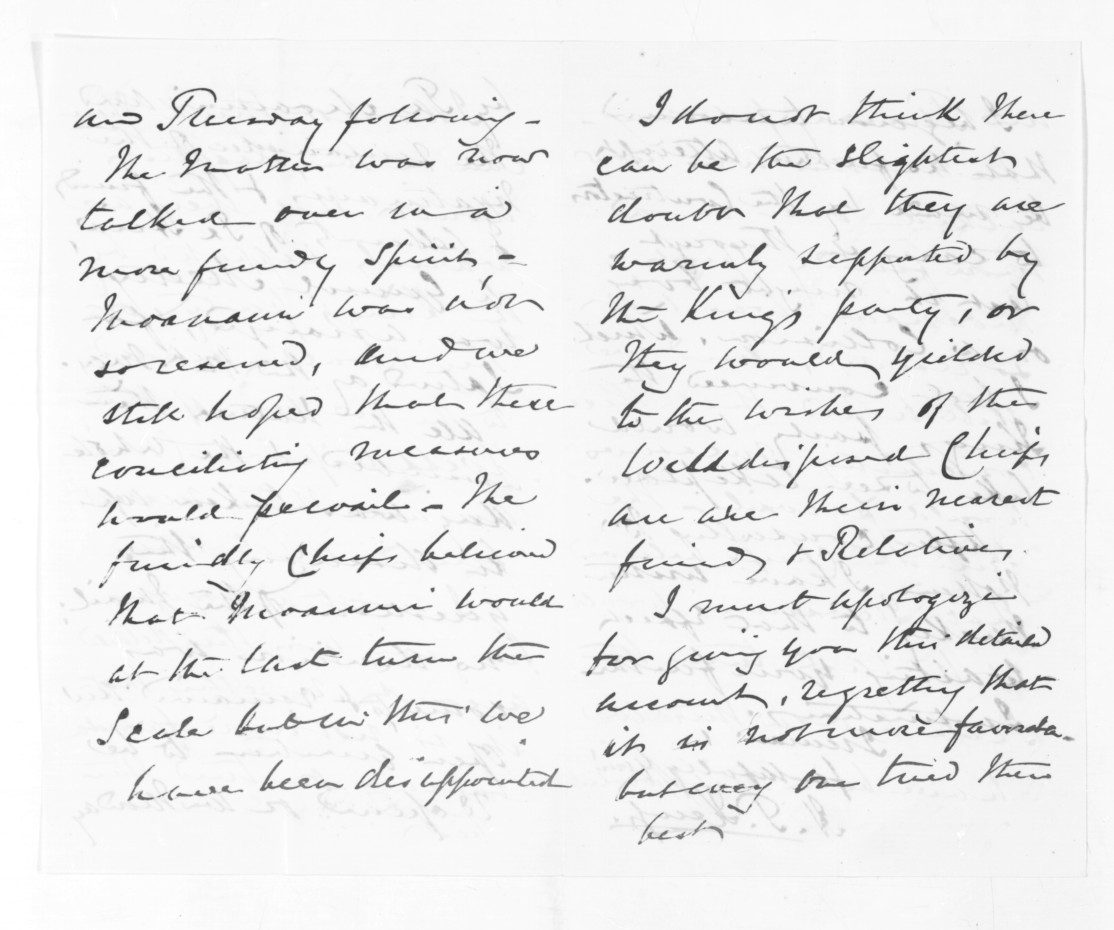 and Tuesday following -
The Matter was now
talked over in a
more friendly Spirit, -
Moanaui was not
so reserved, and we
still hoped that these
conciliating measures
would prevail - The
friendly Chiefs believed
that Moanaui would
at the last turn the
Scale but in this we
have been disappointed
I do not think there
can be the slightest
doubt that they are
warmly supported by
the King's party, or
they would yielded
to the wishes of the
well disposed Chiefs
are their nearest
friends & Relatives.
I must apologize
for giving you this detailed
account, regretting that
it is not more favorda-
but every one tried there
best